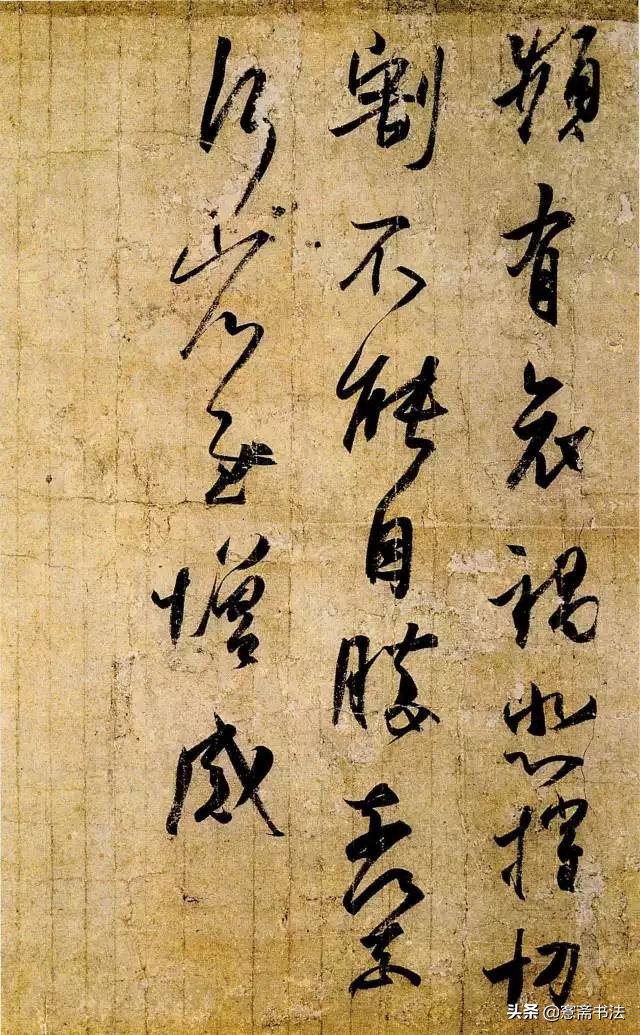 頻有哀禍悲摧切
割不能自勝奈何奈
何省慰增感
头条 @斋书法